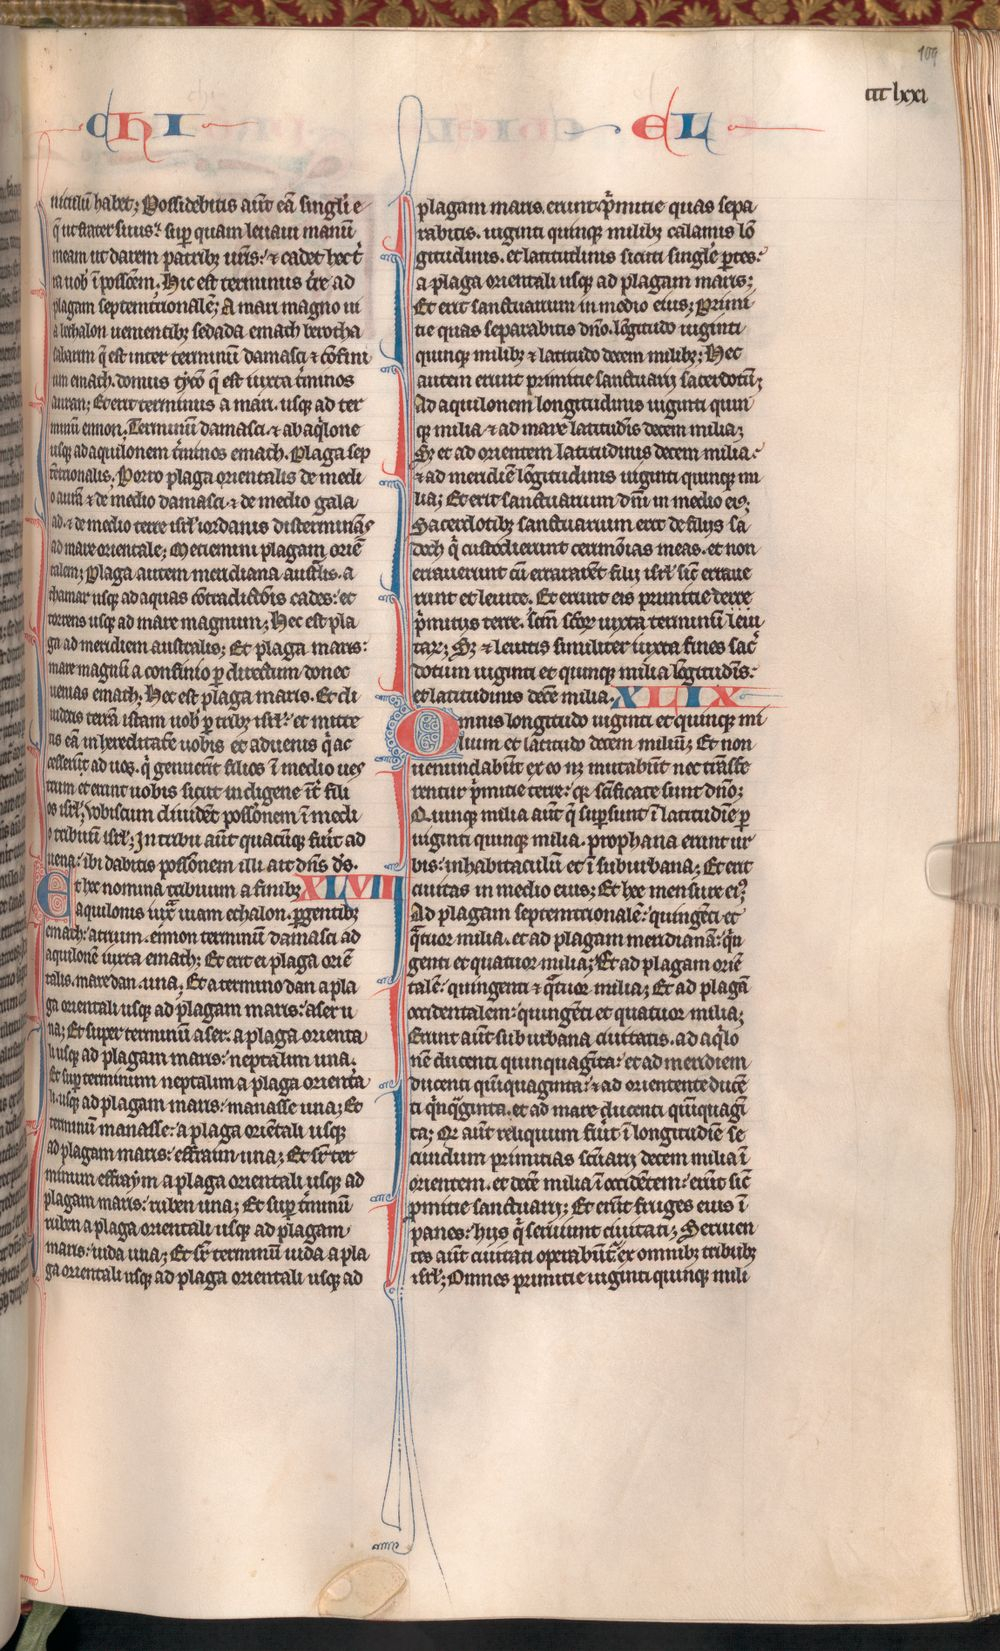 109
ccclxxi
CHI
EL
niculū habet; Possidebitis aūt eā singĺi e
q̄ ut frater suus. sup quam leuaui manū
meam ut darem patribꝫ ur̄is: ⁊ cadet hec t̄
ra uob̄ ī possc̄em. Hic est terminus t̄re ad
plagam septemtrionalē; A mari magno ui
a bethalon uenientibꝫ sedada emach berotha
sabarim q̄ est inter terminū damasci ⁊ cōfini
um emach. domus tycō q̄ est iuxta t̄minos
auran; Et erit terminus a mari. usqꝫ ad ter
minū ennon. Terminū damasci. ⁊ ab aq̇lone
usqꝫ ad aquilonem t̄minos emach. Plaga sep
tētrionalis. Porro plaga orientalis de medi
o auran ⁊ de medio damasci. ⁊ de medio gala
ad. ⁊ de medio terre isrl̄ iordanis disterminās
ad mare orientale; Meciemini plagam oriē
talem; Plaga autem meridiana austlis. a
thamar usqꝫ ad aquas cōtradictōis cades: et
torrens usqꝫ ad mare magnum; Hec est pla
ga ad meridiem australis; Et plaga maris:
mare magnū a confinio p directum donec
uenias emach; Hec est plaga maris. Et di
uidetis terrā istam uob̄ p tribꝫ isrl̄: et mitte
tis eā in hereditatē uobis et aduenis q̇ ac
cesserīt ad uos. q̇ genuerīt filios ī medio ues
trum et erunt uobis sicut indigene īt̄ fili
os isrl̄; Vobiscum diuidēt possc̄onem ī medi
o tribuū isrl̄; In tribu aūt quacūqꝫ fūit ad
uena: ibi dabitis possc̄onem illi ait dn̄s ds̄.
Et hec nomina tribuum a finibꝫ XLVII
aquilonis iux̄ uiam echalon. pgentibꝫ
emach: atrium. einon terminū damasci ad
aquilonē iuxta emach; Et erit ei plaga oriē
talis. mare dan. una; Et a termino dan a pla
ga orientali usqꝫ ad plagam maris: aser u
na; Et super terminū aser. a plaga orienta
li usqꝫ ad plagam maris: neptalim una.
Et sup terminum neptalim a plaga orienta
li. usqꝫ ad plagam maris: manasse una; Et
terminū manasse: a plaga oriētali usqꝫ
ad plagam maris: effraim una; Et sr̄ ter
minum effraym a plaga orientali usqꝫ ad
plagam maris: ruben una; Et sup t̄minū
ruben a plaga orientali usqꝫ ad plagam
maris: iuda una; Et sr̄ terminū iuda a pla
ga orientali usqꝫ ad plaga orientali usqꝫ ad
plagam maris. erunt p̄mitie quas sepa
rabitis. uiginti quinqꝫ milibꝫ calamis lō
gitudinis. et latitudinis sicuti singlē ptes:
a plaga orientali usqꝫ ad plagam maris;
Et erit sanctuarium in medio eius; Primi
tie quas separabitis dn̄o. lōgitudo uiginti
quinqꝫ milibꝫ ⁊ latitudo decem milibꝫ; Hec
autem erunt primitie sanctuarij sacerdotū;
Ad aquilonem longitudinis uiginti quin
qꝫ milia. ⁊ ad mare latitudīs decem milia;
Sꝫ et ad orientem latitudinis decem milia.
⁊ ad meridiē lōgitudinis uiginti quinqꝫ mi
lia; Et erit sanctuarium dn̄i in medio eiꝰ;
Sacerdotibꝫ sanctuarium erit de filijs sa
doch q̇ custodierunt cerimōias meas. et non
errauerunt cū errararēt filij isrl̄ sic̄ erraue
runt et leuite. Et erunt eis primitie terre
p̄mitijs terre. sc̄m sc̄or iuxta terminū leui
tarꝫ; Sꝫ ⁊ leuitis similiter iuxta fines sac̄
dotum uiginti et quinqꝫ milia lōgitudīs:
et latitudinis decē milia. XLIX
Omnis longitudo uiginti et quinqꝫ mi
lium et latitudo decem miliū; Et non
uenundabūt ex eo nꝫ mutabūt nec trāsfe
rentur p̄mitie terre: qꝫ sc̄ificate sunt dn̄o;
Quinqꝫ milia aūt q̄ supsunt ī latitudīe p
uiginti quinqꝫ milia. prophana erunt ur
bis: inhabitaculū et ī suburbana; Et erit
ciuitas in medio eius; Et hee mensure eiꝰ
Ad plagam septemtrionalē: quingēti et
q̄tuor milia. et ad plagam meridianā: q̇n
genti et quatuor milia; Et ad plagam oriē
talē: quingenti ⁊ q̄tuor milia; Et ad plagā
occidentalem: quingēti et quatuor milia;
Erunt aūt suburbana ciuitatis. ad aq̇lo
nē ducenti quinquagīta: et ad meridiem
ducenti quīquaginta: ⁊ ad orientente ducē
ti q̇nq̄ginta. et ad mare ducenti quīquagī
ta; Qd aūt reliquum fūit ī longitudīe se
cundum primitias sc̄uarij decem milia ī
orientem. et decē milia ī occidētem: erūt sic̄
p̄mitie sanctuarij; Et erūt fruges eius ī
panes: hijs q̇ seruiunt ciuitati; Seruien
tes aūt ciuitati opabūt̄ ex omnibꝫ tribubꝫ
isrl̄; Omnes primitie uiginti quinqꝫ mili